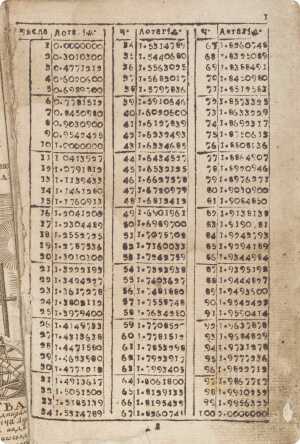 1
числа Логариѳ. ч. Логариѳ. ч. Логариѳ.
1 0.0000000 34 1.5314789 67 1.8260748
2 0.3010300 35 1.5440680 68 1.8325089
3 0.4771213 36 1.5563025 69 1.8388491
4 0.6020600 37 1.5682017 70 1.8450980
5 0.6989700 38 1.5797836 71 1.8512583
6 0.7781513 39 1.5910646 72 1.8573325
7 0.8450980 40 1.6020600 73 1.8633229
8 0.9030900 41 1.6127839 74 1.8692317
9 0.9542425 42 1.6232493 75 1.8750613
10 1.0000000 43 1.6334685 76 1.8808136
11 1.0413927 44 1.6434527 77 1.8864907
12 1.0791812 45 1.6532125 78 1.8920946
13 1.1139433 46 1.6627578 79 1.8976271
14 1.1461280 47 1.6720979 80 1.9030900
15 1.1760913 48 1.6812412 81 1.9084850
16 1.2041200 49 1.6901961 82 1.9138138
17 1.2304489 50 1.6989700 83 1.9190781
18 1.2552725 51 1.7075702 84 1.9242793
19 1.2787536 52 1.7160033 85 1.9294189
20 1.3010300 53 1.7242759 86 1.9344984
21 1.3222193 54 1.7323938 87 1.9395192
22 1.3424227 55 1.7403627 88 1.9444827
23 1.3617278 56 1.7481880 89 1.9493900
24 1.3802112 57 1.7558748 90 1.9542425
25 1.3979400 58 1.7634280 91 1.9590414
26 1.4149733 59 1.7708520 92 1.9637878
27 1.4313638 60 1.7781512 93 1.9684829
28 1.4471580 61 1.7853298 94 1.9731278
29 1.4623980 62 1.7923917 95 1.9777236
30 1.4771213 63 1.7993405 96 1.9822712
31 1.4913617 64 1.8061800 97 1.9867717
32 1.5051500 65 1.8129133 98 1.9912261
33 1.5185139 66 1.8195439 99 1.9956352
34 1.5314789 67 1.8260748 100 2.0000000